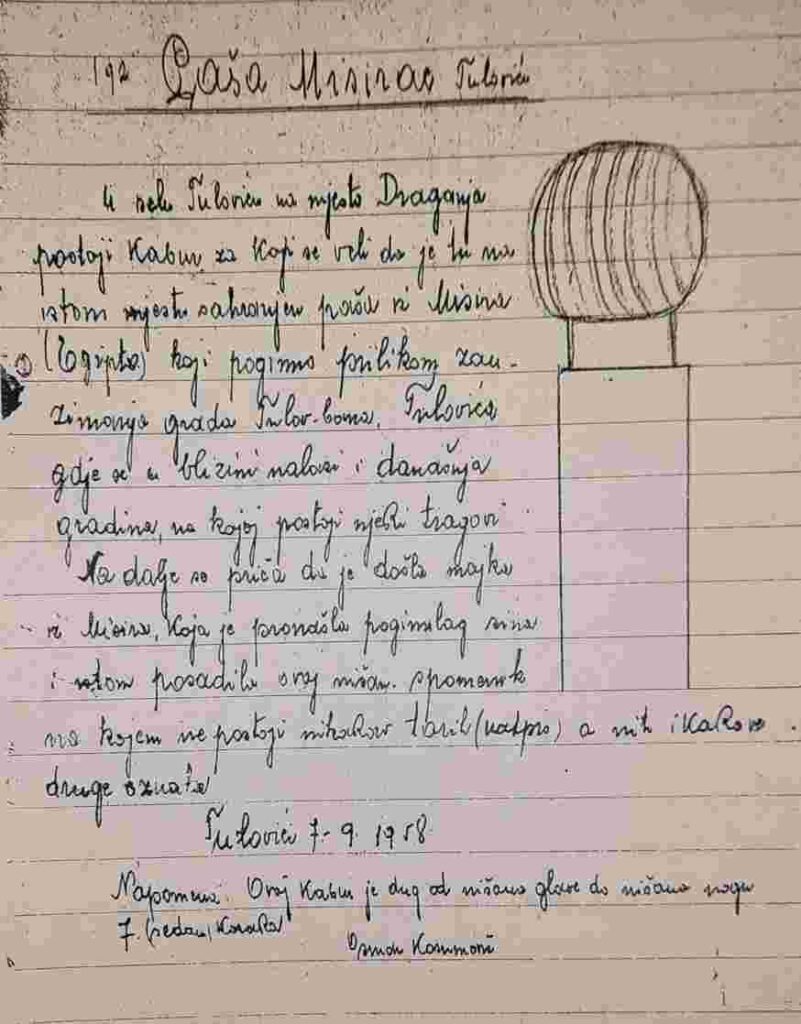 192 Paša Misirac Tulovići
U selu Tulovići na mjesto Draganja
postoji Kabur za koji se veli da je tu na
istom mjestu sahranjen paša iz Misira
(Egipta) koji poginuo prilikom zau-
zimanja grada Tulov-bana, Tulovića
gdje se u blizini nalazi i današnja
gradina, na kojoj postoji njeki tragovi
Na dalje se priča da je došla majka
iz Misira, koja je pronašla poginulog sina
i istom posadila ovaj nišan. spomenik
na kojem ne postoji nikakov tarih (natpis) a nit ikakove
druge oznake
Tulovići 7-9. 1958
Napomena. Ovaj Kabur je dug od nišana glave do nišana nogu
7. (sedam) Koraka